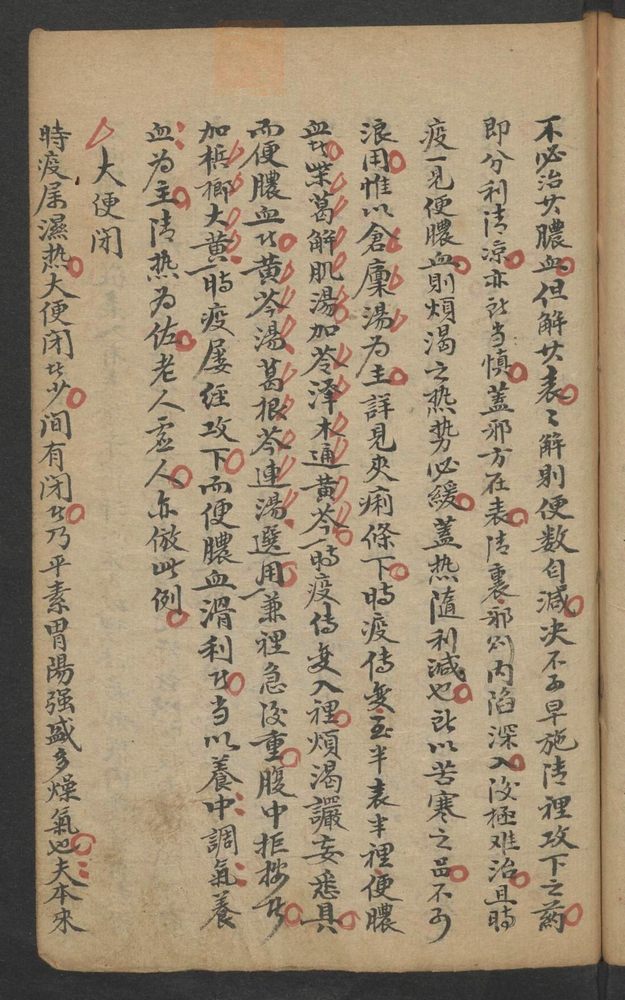 不必治其膿血但解其表〻解則便数自减决不可早施清裡攻下之藥
即分利清凉亦所当慎蓋邪方在表清裏邪必内陷深入後極难治且時
疫一見便膿血則煩渴之热势必緩蓋热随利减也所以苦寒之品不可
浪用惟以倉廩湯為主詳見夾痢條下時疫傳变至半表半裡便膿
血者柴葛解肌湯加苓澤木通黄芩時疫傳变入裡煩渴讝妄悉具
而便膿血者黄芩湯葛根芩連湯選用兼裡急後重腹中拒按者
加檳榔大黄時疫屡经攻下而便膿血滑利者当以養中調氣養
血為主清热为佐老人虚人亦倣此例
大便闭
時疫属濕热大便闭者少间有闭者乃平素胃陽强盛多燥氣也夫本來